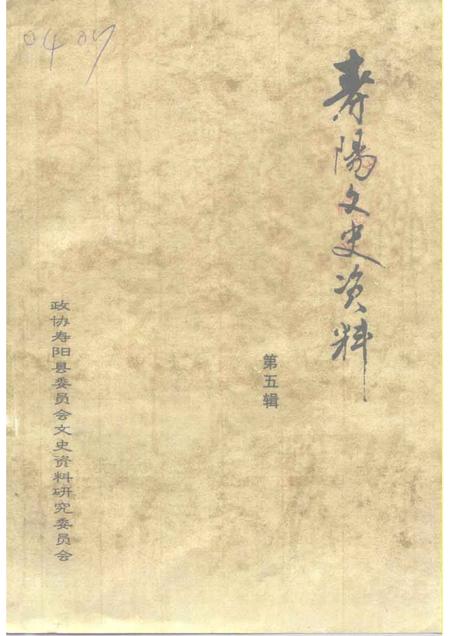 寿陽文史资料
第五辑
政协寿阳县委员会文史资料研究委员会